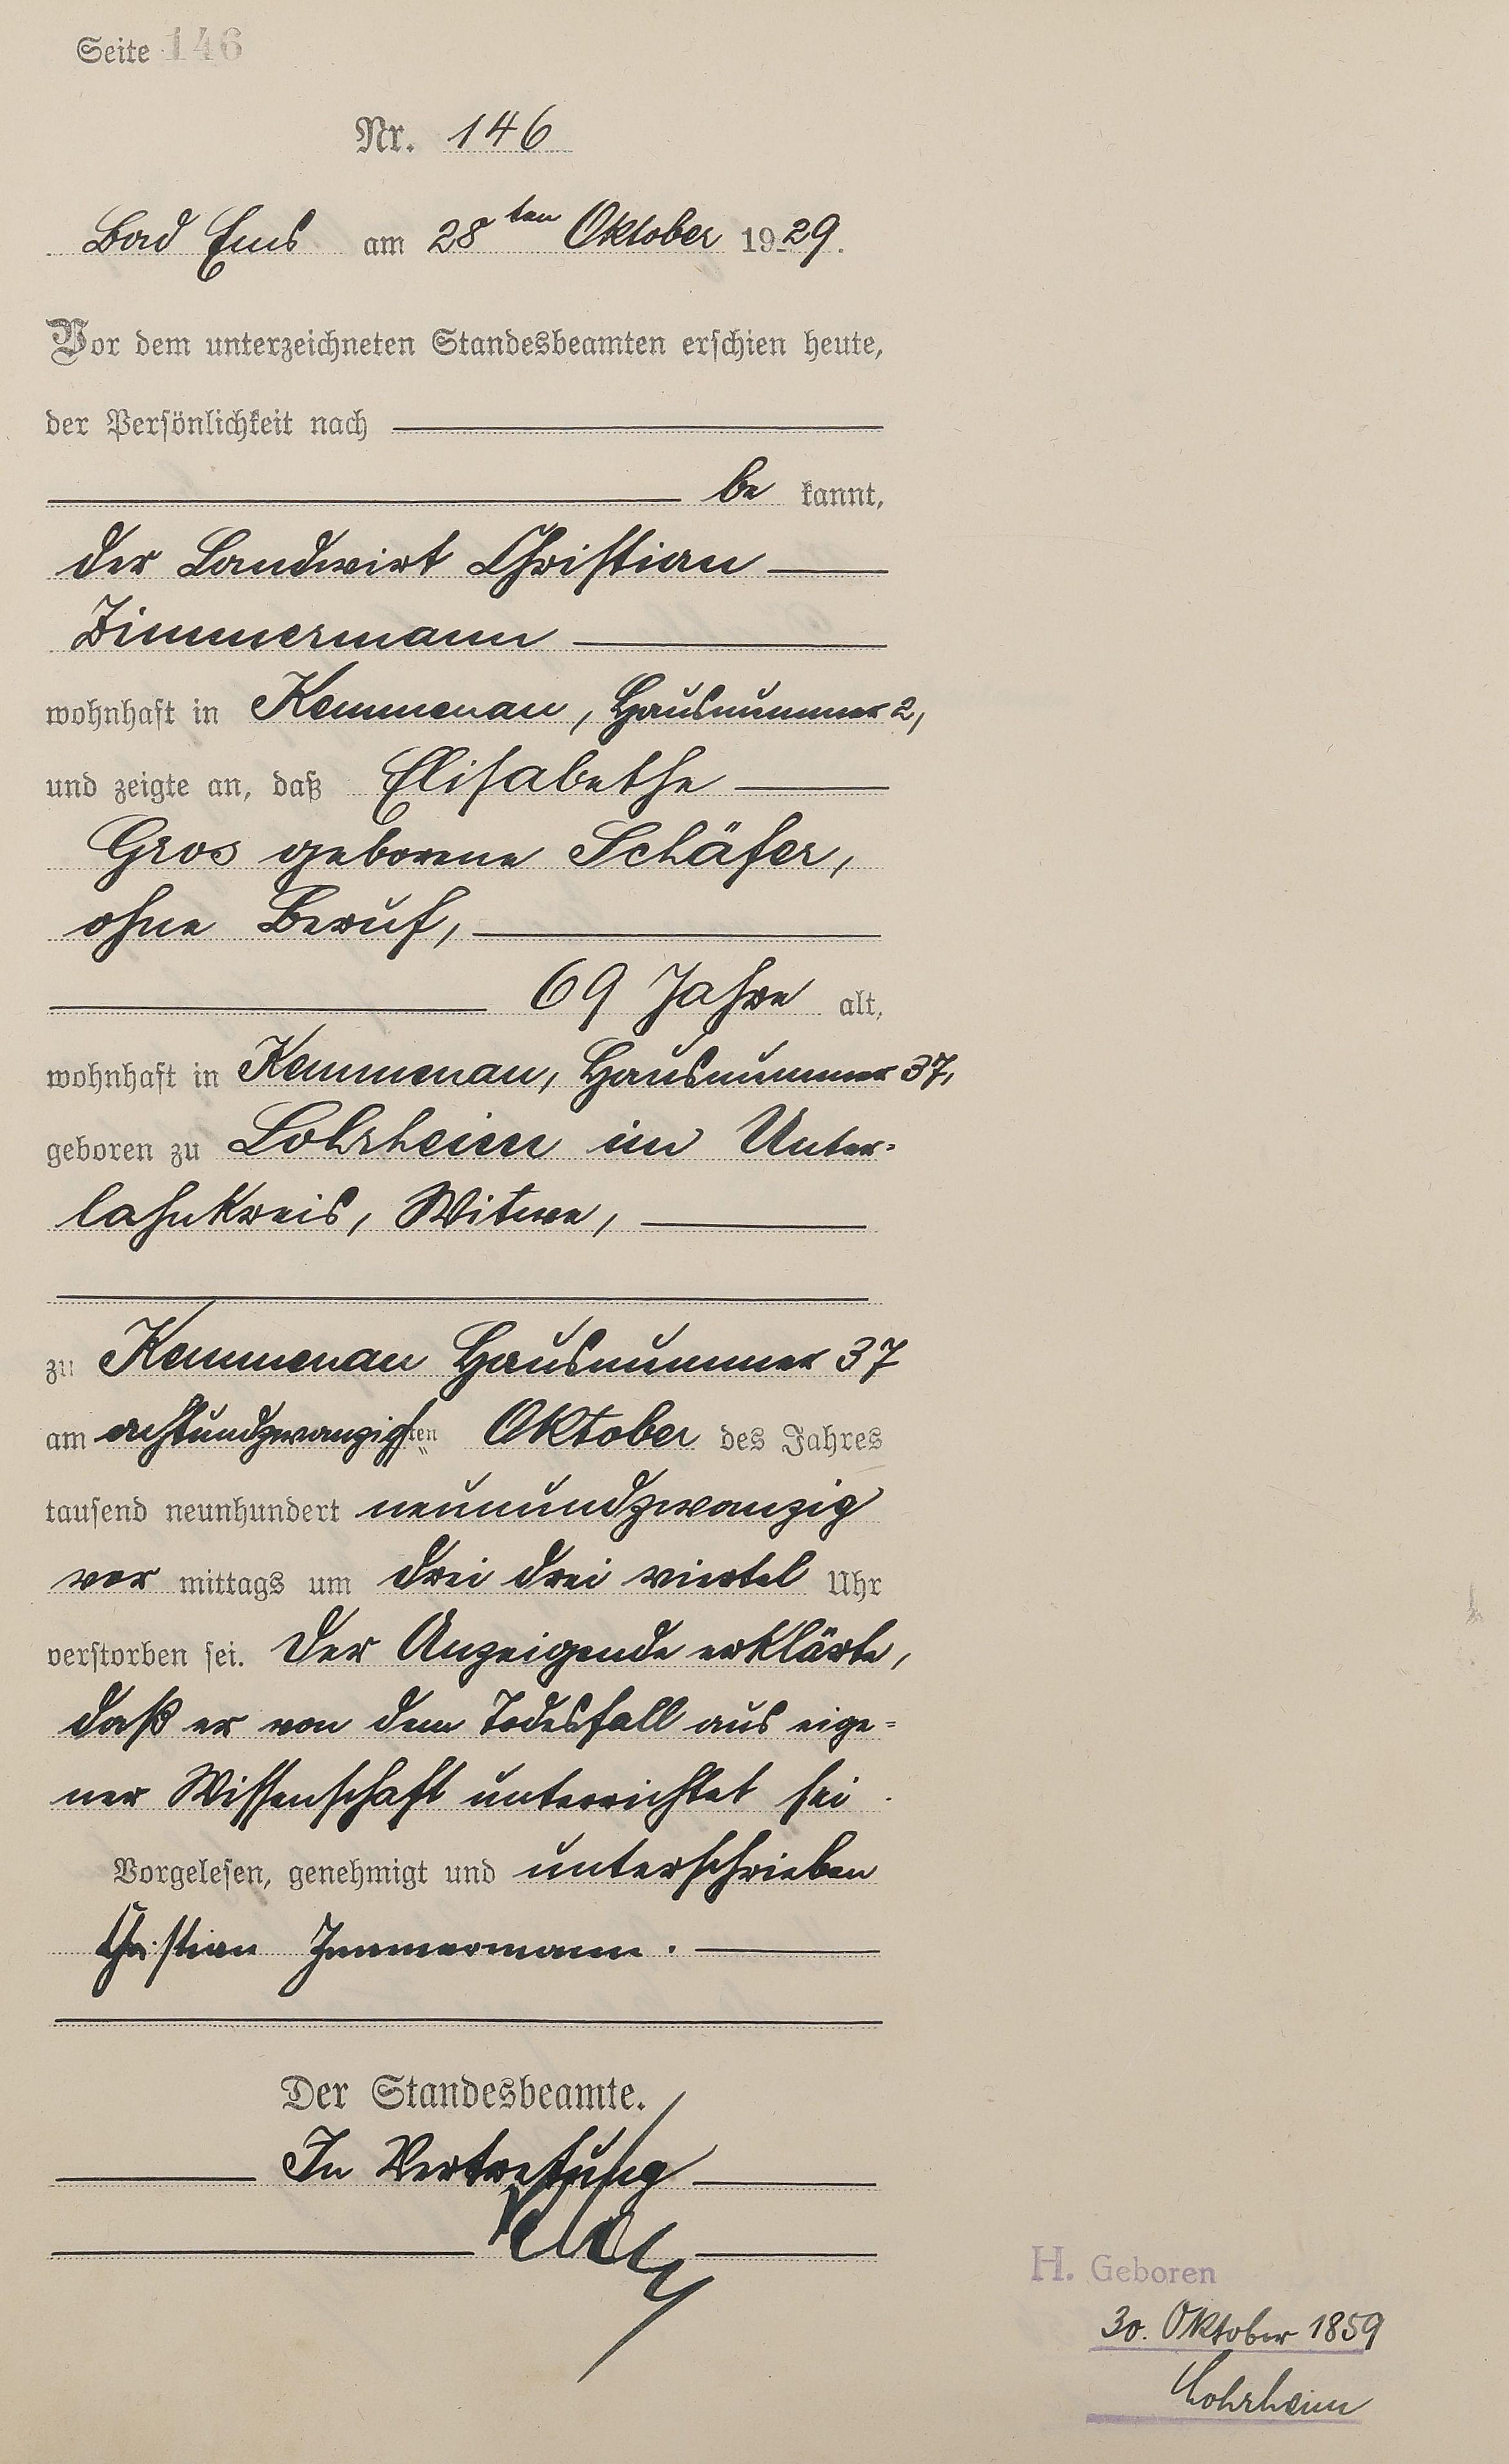 Seite 146
Nr. 146
Bad Ems am 28ten Oktober 1929.
Vor dem unterzeichneten Standesbeamten erschien heute,
der Persönlichkeit nach
be kannt,
der Landwirt Christian
Zimmermann
wohnhaft in Kemmenau, Hausnummer 2,
und zeigte an, daß Elisabethe
Gros geborene Schäfer,
ohne Beruf,
69 Jahre alt,
wohnhaft in Kemmenau, Hausnummer 37,
geboren zu Lohrheim im Unter-
lahnkreis, Witwe,
zu Kemmenau Hausnummer 37
am achtundzwanzigsten Oktober des Jahres
tausend neunhundert neunundzwanzig
vor mittags um drei drei viertel Uhr
verstorben sei. Der Anzeigende erklärte,
daß er von dem Todesfall aus eige-
ner Wissenschaft unterrichtet sei.
Vorgelesen, genehmigt und unterschrieben
Christian Zimmermann.
Der Standesbeamte.
In Vertretung
H. Geboren
30. Oktober 1859
Lohrheim